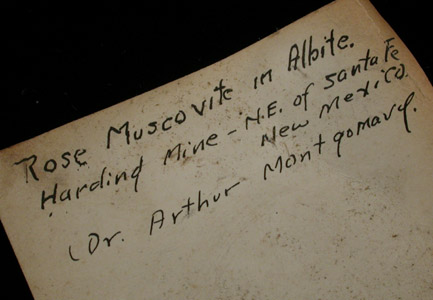 Rose Muscovite in Albite.
Harding Mine - N.E. of Santa Fe
New Mexico.
(Dr. Arthur Montgomary.